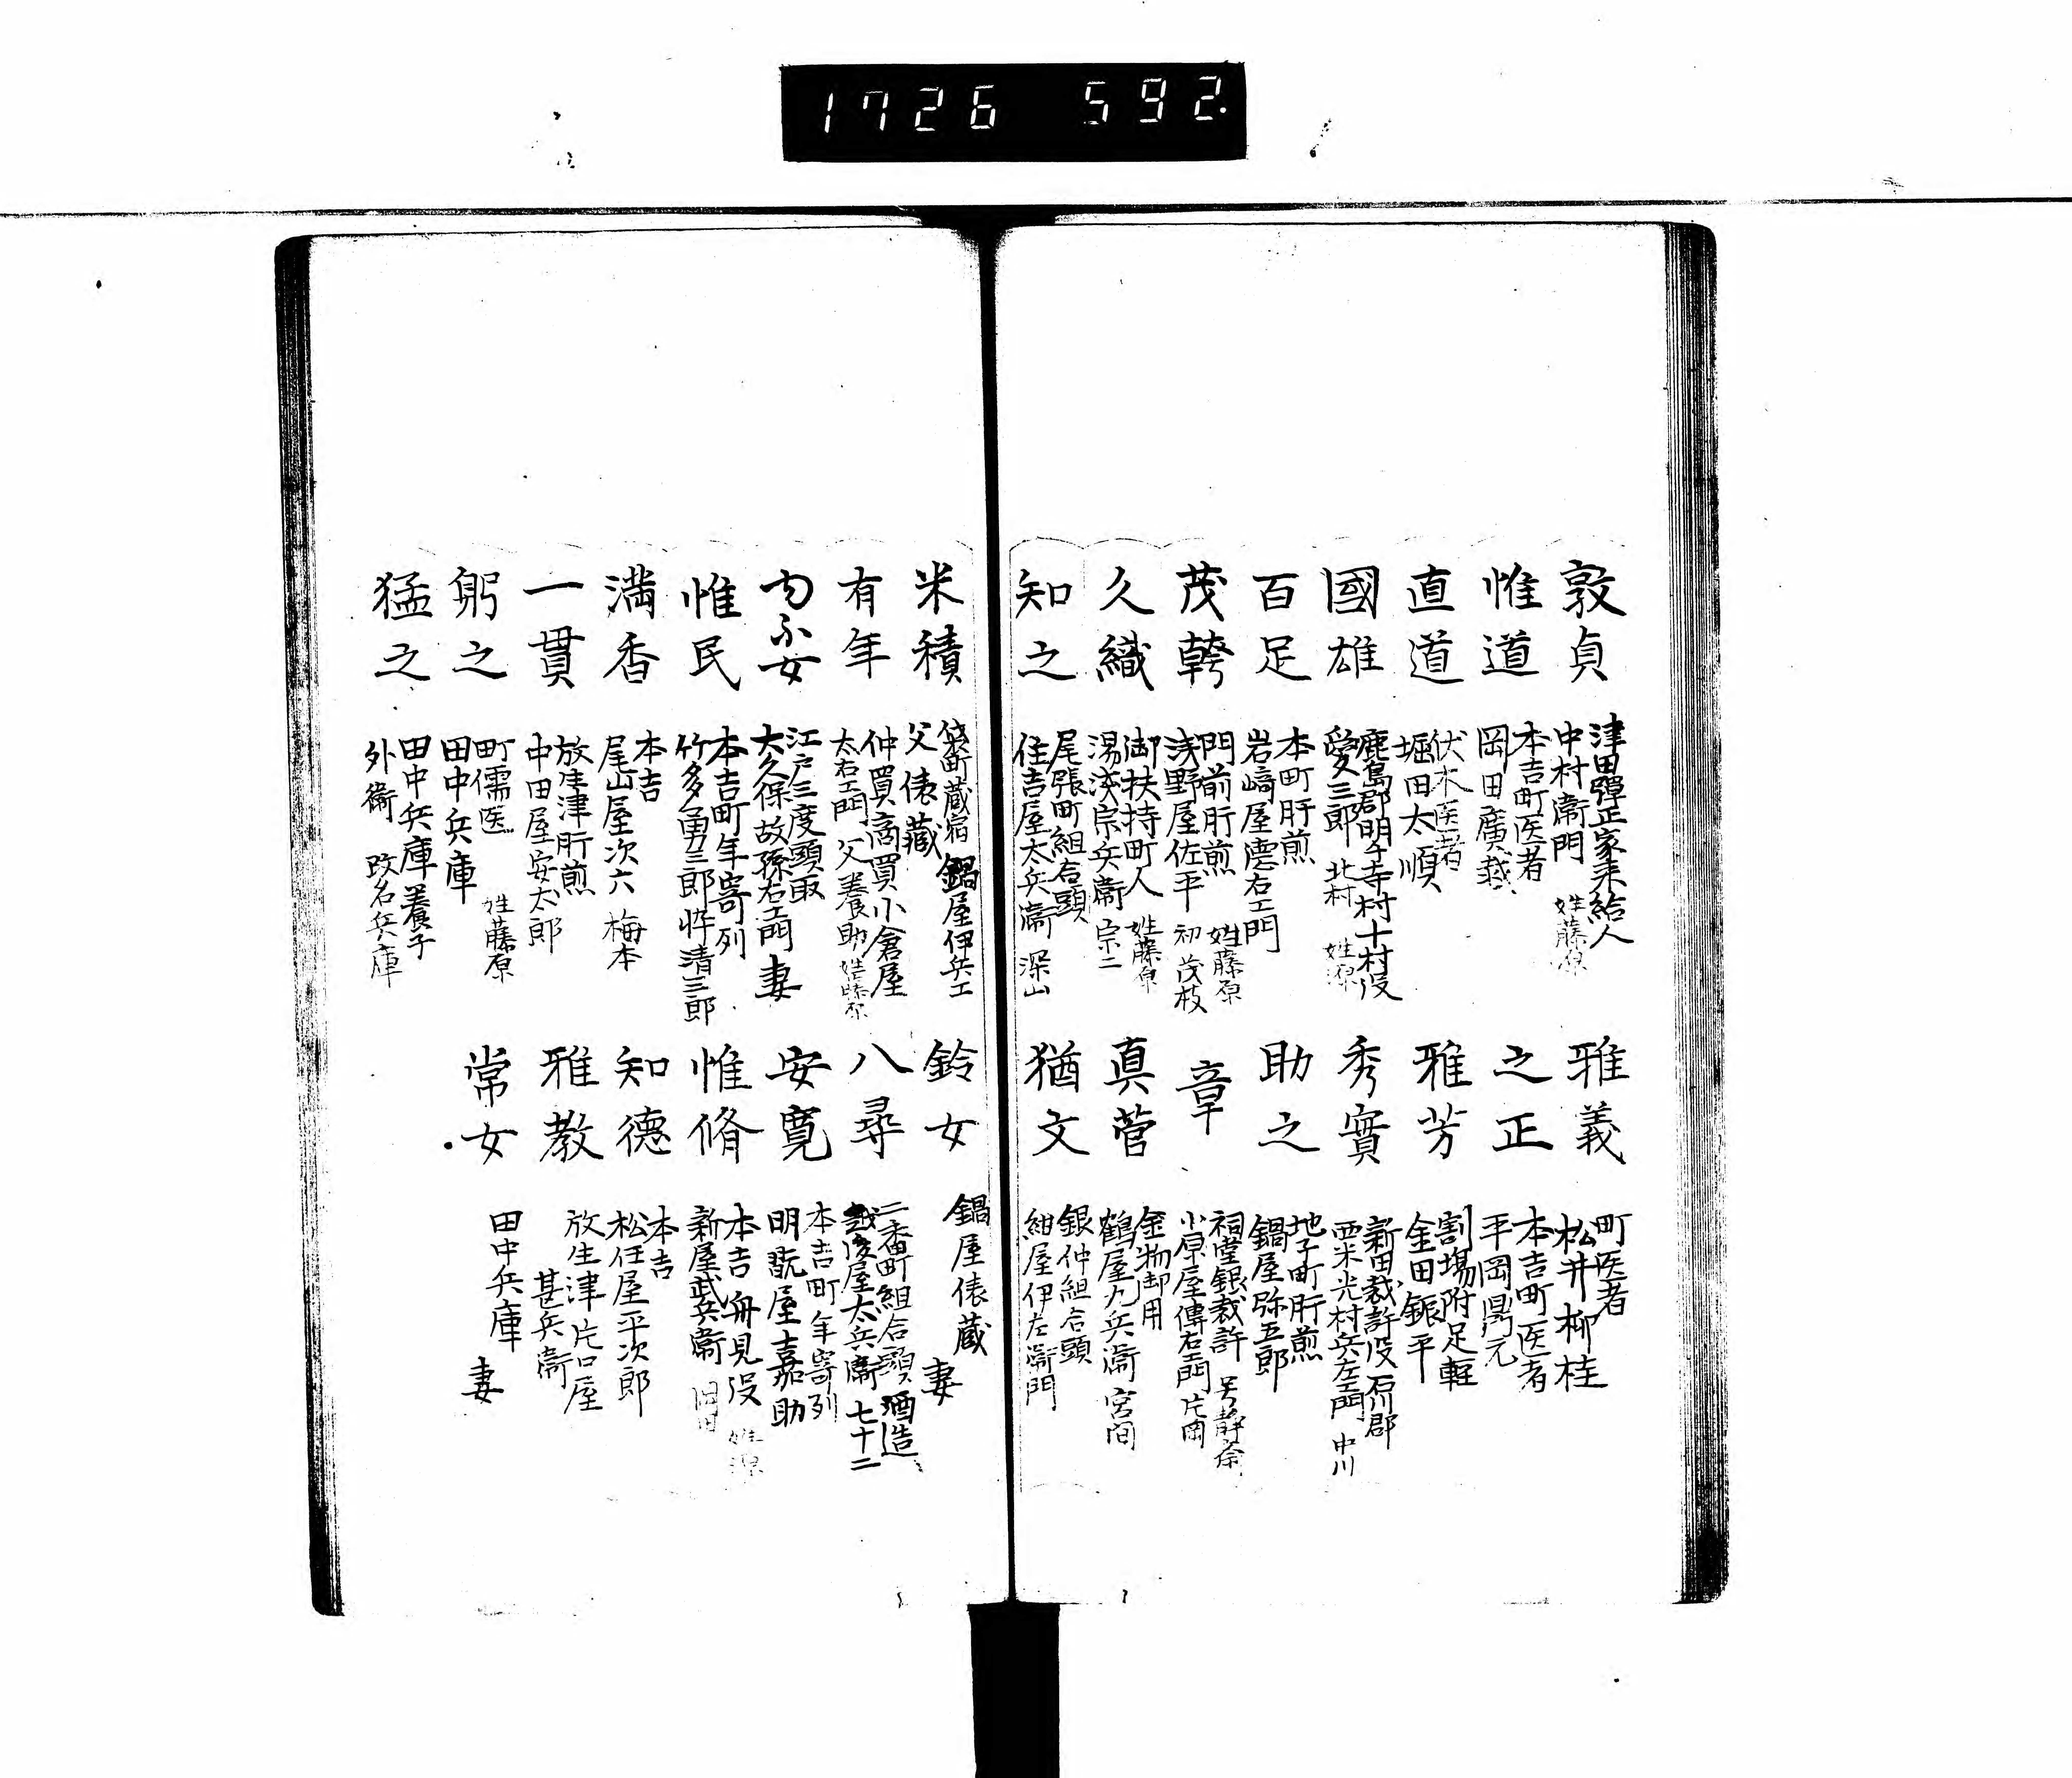 1726 592
敦貞
津田彈正家来給人
中村衛門 姓藤原
惟道
本吉町医者
岡田廣哉
直道
伏木医者
堀田太順
國雄
鹿島郡明千寺村十村役
愛三郎 北村 姓源
百足
本町肝煎
岩﨑屋徳右エ門
茂幹
門前肝煎 姓藤原
浅野屋佐平 初茂枝
久織
御扶持町人 姓藤原
湯浅宗兵衞 宗二
知之
尾張町組合頭
住吉屋太兵衞 深山
雅義
町医者
松井柳桂
之正
本吉町医者
平岡鼎元
雅芳
割場附足軽
金田銀平
秀實
新田裁許役石川郡
西米光村兵左エ門 中川
助之
地子町肝煎
鍋屋弥五郎
章
祠堂銀裁許 号静斎
小原屋傳右エ門 片岡
真菅
金物御用
鶴屋九兵衞 宮間
猶文
銀仲組合頭
紺屋伊左衞門
米積
町蔵宿 鍋屋伊兵エ
父俵蔵
有年
仲買商買小倉屋
太右エ門父養助 姓藤原
女
江戸三度頭取
大久保故孫右エ門妻
惟民
本吉町年寄列
竹多勇三郎悴清三郎
満香
本吉
尾山屋次六 梅本
一貫
放生津肝煎
中田屋安太郎
躬之
町儒医 姓藤原
田中兵庫
猛之
田中兵庫養子
外衞 改名兵庫
鈴女
鍋屋俵蔵
妻
八尋
二番町組合頭 酒造
越後屋太兵衞 七十二
安寛
本吉町年寄列
明翫屋嘉助
惟脩
本吉舟見役 姓源
新屋武兵衞
知德
本吉
松任屋平次郎
雅教
放生津片口屋
甚兵衞
常女
田中兵庫
妻